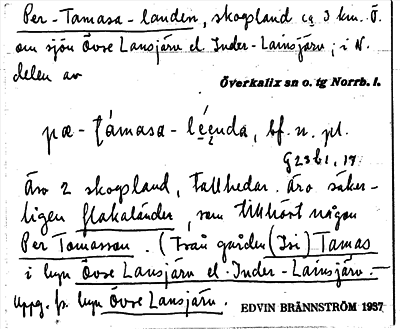 Per-Tamasa-landen, skogsland ca 3 km. Ö.
om sjön Övre Lansjärv el. Inder-Lainsjärv; i N.
delen av
Överkalix sn o. tg Norrb. l.
pæ-támasa-lé̱enda, bf. n. pl.
G23b1, 17.
Äro 2 skogsland, tallhedar. Äro säker-
ligen flakaländer, som tillhört någon
Per Tomasson. (Från gården (Isi) Tamas
i byn Övre Lansjärv el. Inder-Lainsjärv.-
Uppg. fr. byn Övre Lansjärv.
EDVIN BRÄNNSTRÖM 1937